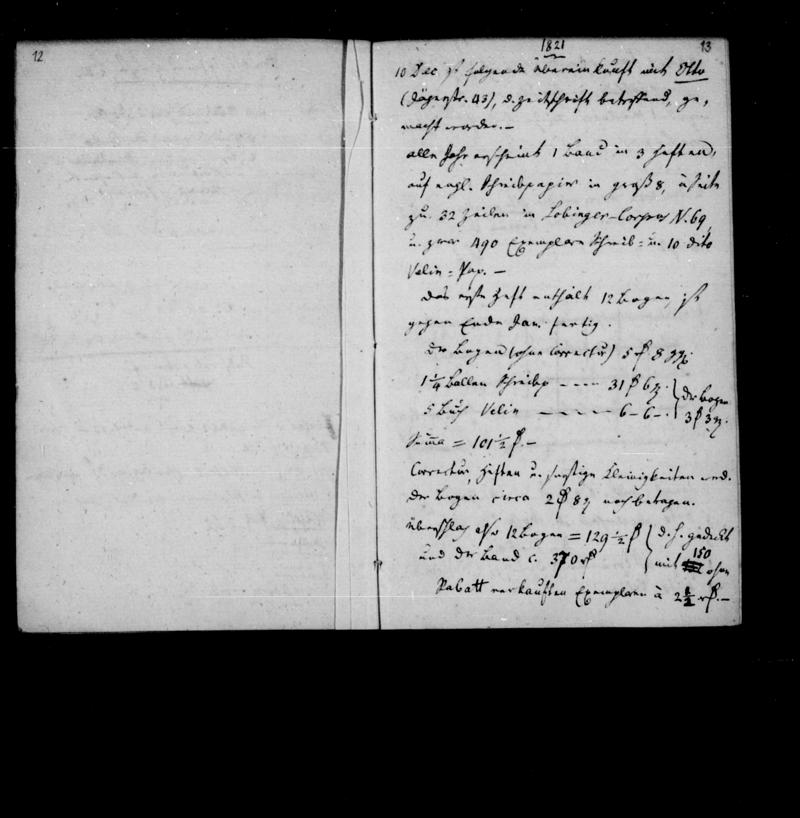 12
1821
13
10 Dec ist folgende Übereinkunft mit Otto
(Jägerstr. 43), d. Zeitschrift betreffend, ge-
macht worden. —
alle Jahr erscheint 1 Band in 3 Heften,
auf engl. Schreibpapier in groß 8, à Seite
zu 32 Zeilen in Corpus N. 69,
u. zwar 490 Exemplare Schreib- u. 10 dito
Velin-Pap. —
Das erste Heft enthält 12 Bogen, ist
gegen Ende Jan. fertig.
Der Bogen (ohne Correctur) 5 8
1 1/4 Ballen Schreibp — 31 6 } der Bogen
5 Buch Velin — 6 — 6 — } 3 3
Summa = 101 1/2 —
Correctur, Heften u. sonstige Kleinigkeiten wird
der Bogen circa 2 8 noch betragen.
Überschlag also 12 Bogen = 129 1/2 } d. h. gedeckt
und der Band c. 370 } mit 150 ohne
Rabatt verkauften Exemplaren à 2 1/2 —